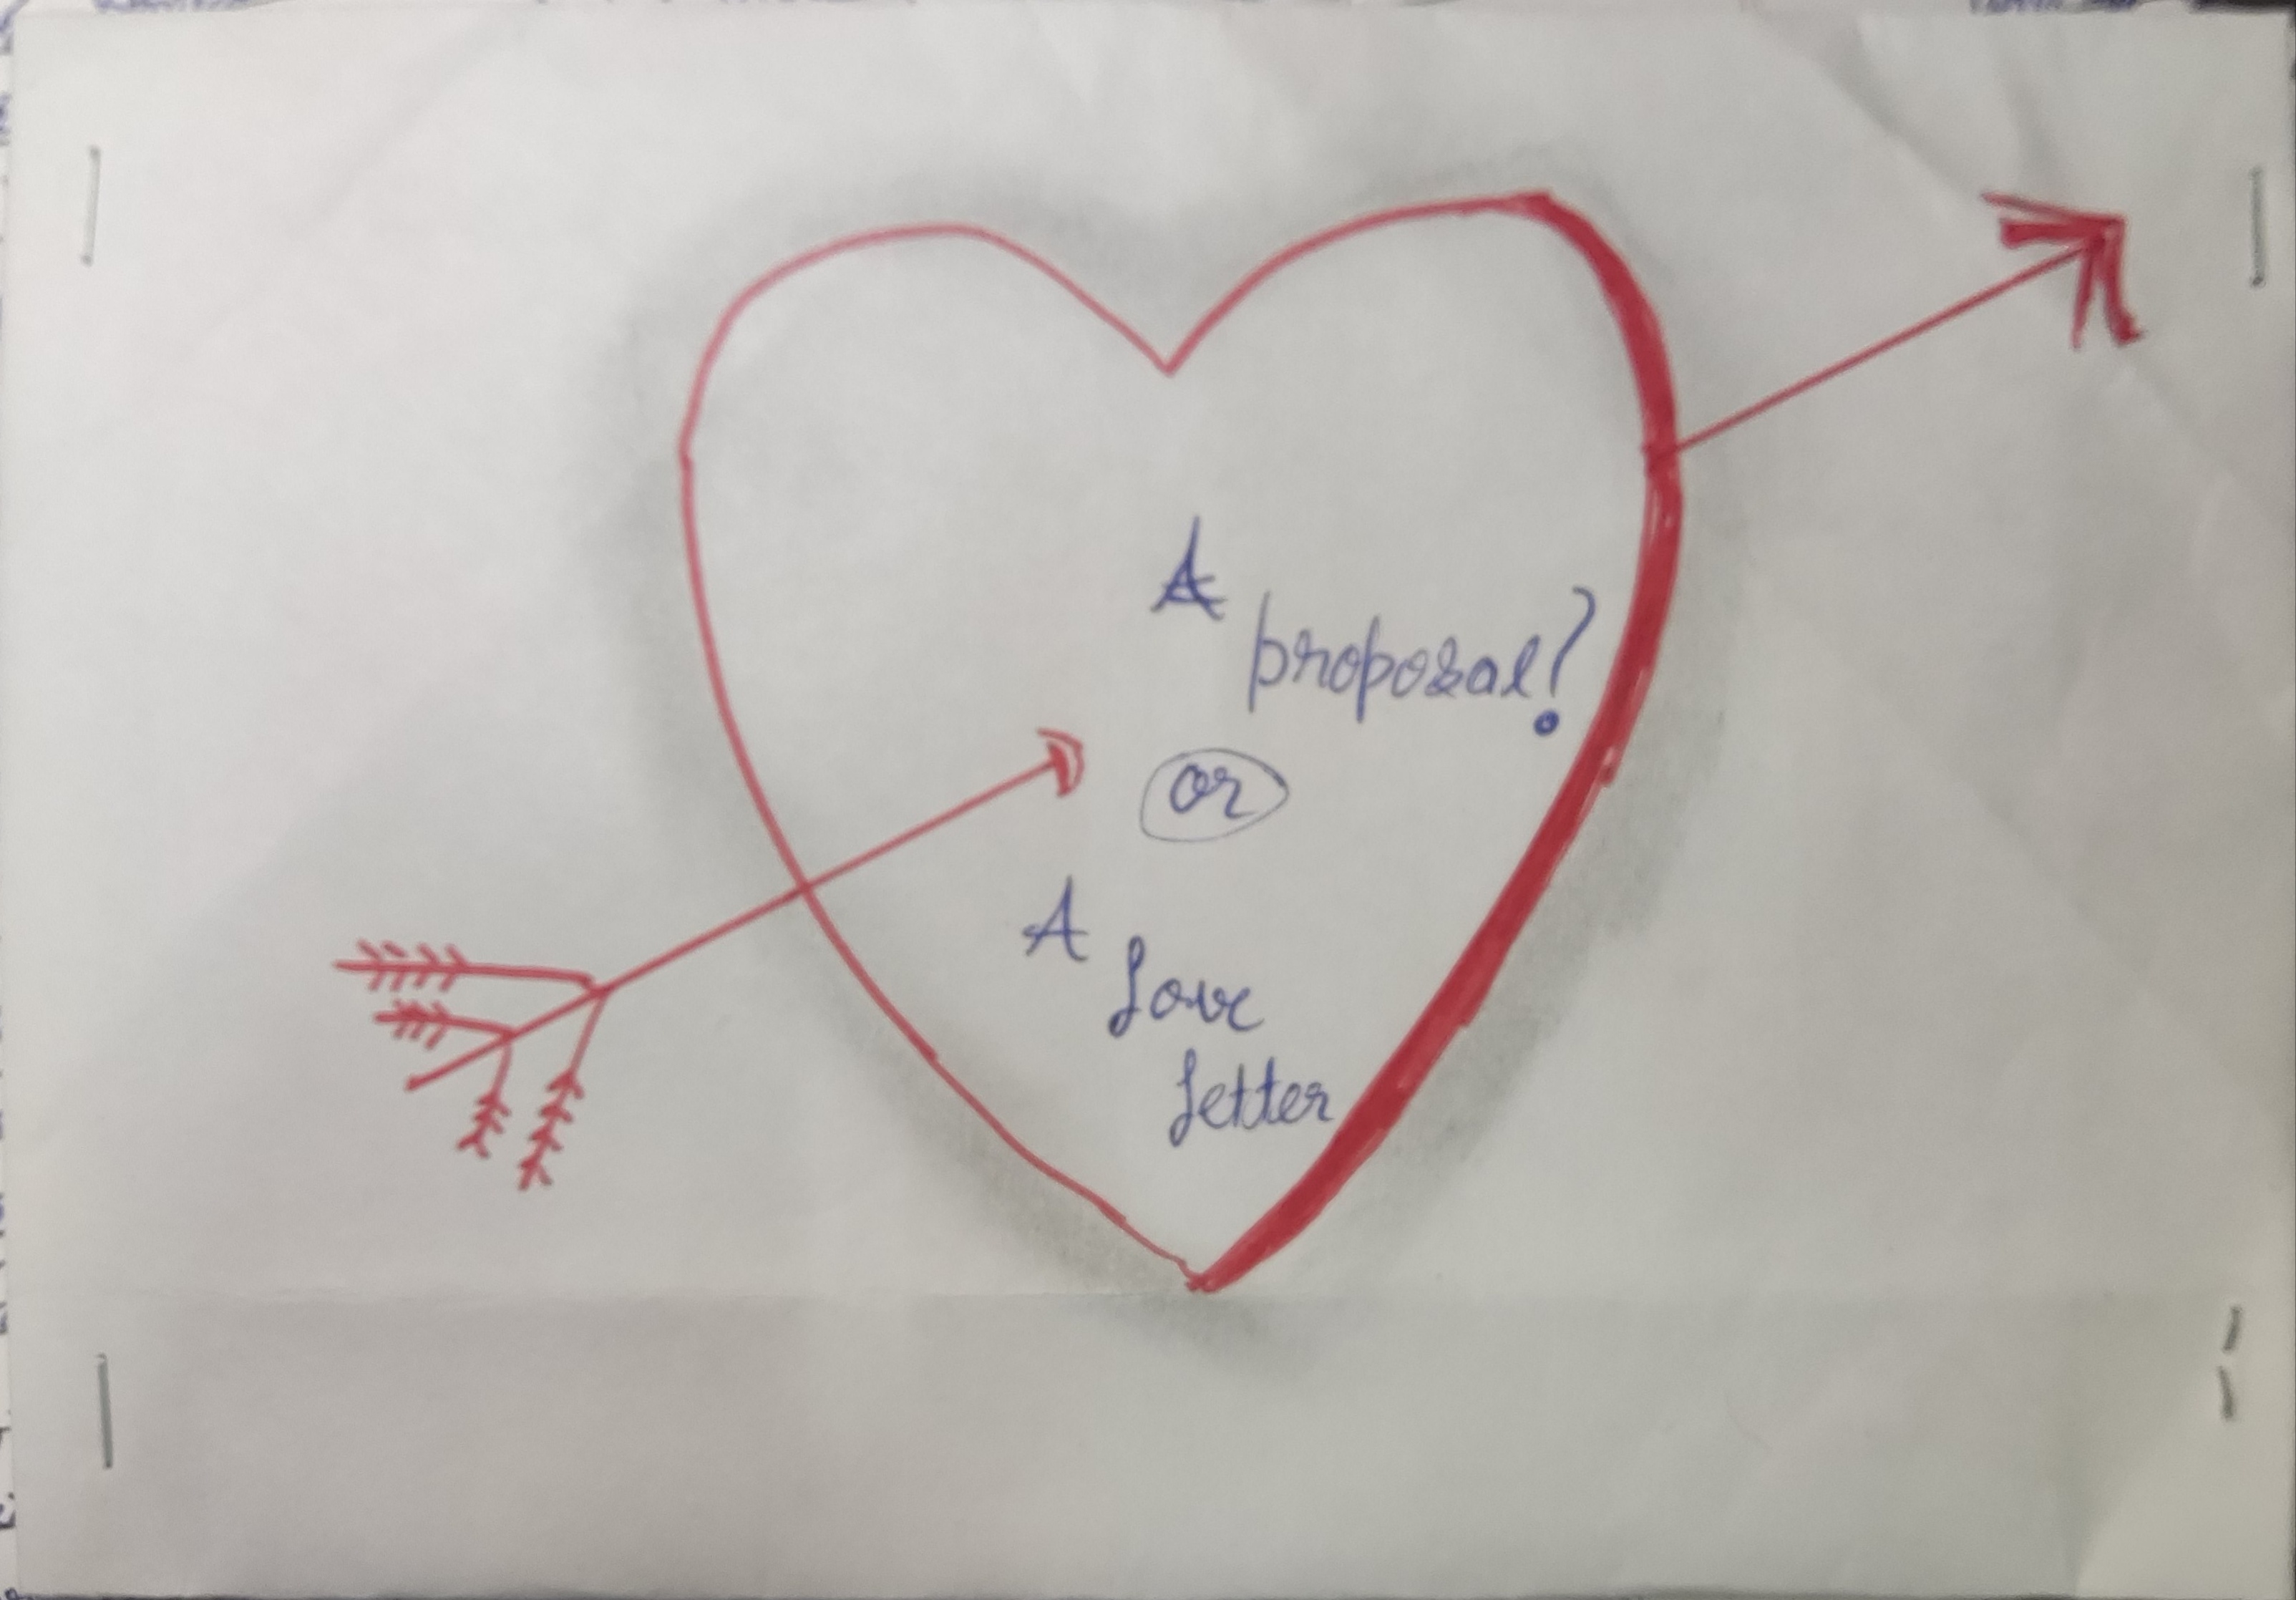 A
proposal?
or
A
Love
Letter